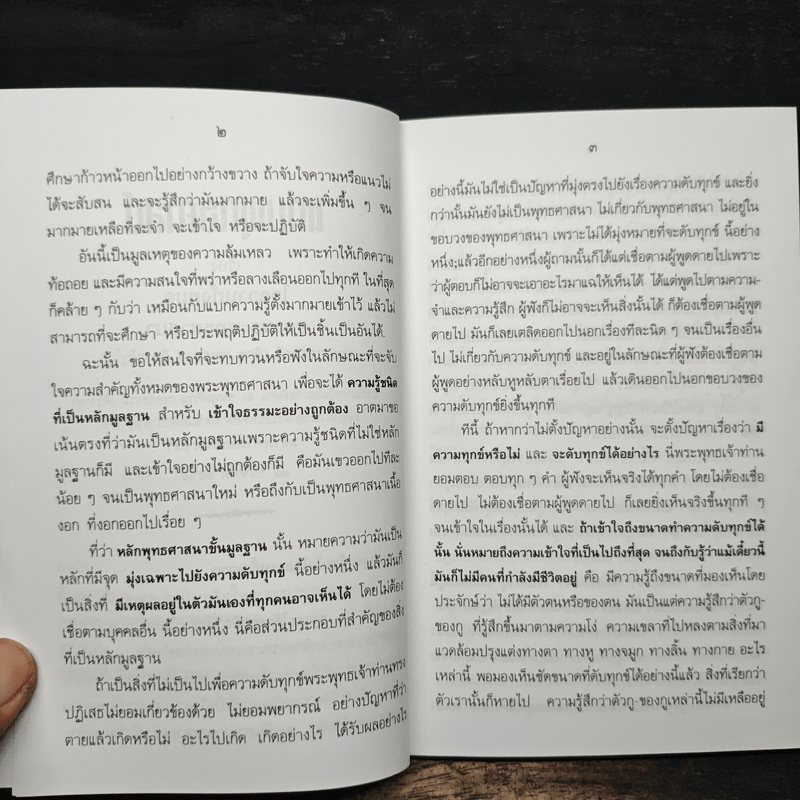 ๒
ศึกษาก้าวหน้าออกไปอย่างกว้างขวาง ถ้าจับใจความหรือแนวไม่
ได้จะสับสน และจะรู้สึกว่ามันมากมาย แล้วจะเพิ่มขึ้น ๆ จน
มากมายเหลือที่จะจำ จะเข้าใจ หรือจะปฏิบัติ
อันนี้เป็นมูลเหตุของความล้มเหลว เพราะทำให้เกิดความ
ท้อถอย และมีความสนใจที่พร่าหรือลางเลือนออกไปทุกที ในที่สุด
ก็คล้าย ๆ กับว่า เหมือนกับแบกความรู้ตั้งมากมายเข้าไว้ แล้วไม่
สามารถที่จะศึกษา หรือประพฤติปฏิบัติให้เป็นชิ้นเป็นอันได้.
ฉะนั้น ขอให้สนใจที่จะทบทวนหรือฟังในลักษณะที่จะจับ
ใจความสำคัญทั้งหมดของพระพุทธศาสนา เพื่อจะได้ ความรู้ชนิด
ที่เป็นหลักมูลฐาน สำหรับ เข้าใจธรรมะอย่างถูกต้อง อาตมาขอ
เน้นตรงที่ว่ามันเป็นหลักมูลฐานเพราะความรู้ชนิดที่ไม่ใช่หลัก
มูลฐานก็มี และเข้าใจอย่างไม่ถูกต้องก็มี คือมันเขวออกไปทีละ
น้อย ๆ จนเป็นพุทธศาสนาใหม่ หรือถึงกับเป็นพุทธศาสนาเนื้อ
งอก ที่งอกออกไปเรื่อย ๆ
ที่ว่า หลักพุทธศาสนาขั้นมูลฐาน นั้น หมายความว่ามันเป็น
หลักที่มีจุด มุ่งเฉพาะไปยังความดับทุกข์ นี้อย่างหนึ่ง แล้วมันก็
เป็นสิ่งที่ มีเหตุผลอยู่ในตัวมันเองที่ทุกคนอาจเห็นได้ โดยไม่ต้อง
เชื่อตามบุคคลอื่น นี้อย่างหนึ่ง นี่คือส่วนประกอบที่สำคัญของสิ่ง
ที่เป็นหลักมูลฐาน
ถ้าเป็นสิ่งที่ไม่เป็นไปเพื่อความดับทุกข์พระพุทธเจ้าท่านทรง
ปฏิเสธไม่ยอมเกี่ยวข้องด้วย ไม่ยอมพยากรณ์ อย่างปัญหาที่ว่า
ตายแล้วเกิดหรือไม่ อะไรไปเกิด เกิดอย่างไร ได้รับผลอย่างไร
๓
อย่างนี้มันไม่ใช่เป็นปัญหาที่มุ่งตรงไปยังเรื่องความดับทุกข์ และยิ่ง
กว่านั้นมันยังไม่เป็นพุทธศาสนา ไม่เกี่ยวกับพุทธศาสนา ไม่อยู่ใน
ขอบวงของพุทธศาสนา เพราะไม่ได้มุ่งหมายที่จะดับทุกข์ นี้อย่าง
หนึ่ง;แล้วอีกอย่างหนึ่งผู้ถามนั้นก็ได้แต่เชื่อตามผู้พูดดายไปเพราะ
ว่าผู้ตอบก็ไม่อาจจะเอาอะไรมาแฉให้เห็นได้ ได้แต่พูดไปตามความ-
จำและความรู้สึก ผู้ฟังก็ไม่อาจจะเห็นสิ่งนั้นได้ ก็ต้องเชื่อตามผู้พูด
ดายไป มันก็เลยเตลิดไปนอกเรื่องทีละนิด ๆ จนเป็นเรื่องอื่น
ไป ไม่เกี่ยวกับความดับทุกข์ และอยู่ในลักษณะที่ผู้ฟังต้องเชื่อตาม
ผู้พูดอย่างหลับหูหลับตาเรื่อยไป แล้วเดินออกไปนอกขอบวงของ
ความดับทุกข์ยิ่งขึ้นทุกที
ทีนี้ ถ้าหากว่าไม่ตั้งปัญหาอย่างนั้น จะตั้งปัญหาเรื่องว่า มี
ความทุกข์หรือไม่ และ จะดับทุกข์ได้อย่างไร นี่พระพุทธเจ้าท่าน
ยอมตอบ ตอบทุก ๆ คำ ผู้ฟังจะเห็นจริงได้ทุกคำ โดยไม่ต้องเชื่อ
ดายไป ไม่ต้องเชื่อตามผู้พูดดายไป ก็เลยยิ่งเห็นจริงขึ้นทุกที ๆ
จนเข้าใจในเรื่องนั้นได้ และ ถ้าเข้าใจถึงขนาดทำความดับทุกข์ได้
นั้น นั่นหมายถึงความเข้าใจที่เป็นไปถึงที่สุด จนถึงกับรู้ว่าแม้เดี๋ยวนี้
มันก็ไม่มีคนที่กำลังมีชีวิตอยู่ คือ มีความรู้ถึงขนาดที่มองเห็นโดย
ประจักษ์ว่า ไม่ได้มีตัวตนหรือของตน มันเป็นแต่ความรู้สึกว่าตัวกู-
ของกู ที่รู้สึกขึ้นมาตามความโง่ ความเขลาที่ไปหลงตามสิ่งที่มา
แวดล้อมปรุงแต่งทางตา ทางหู ทางจมูก ทางลิ้น ทางกาย อะไร
เหล่านี้ พอมองเห็นชัดขนาดที่ดับทุกข์ได้อย่างนี้แล้ว สิ่งที่เรียกว่า
ตัวเรานั้นก็หายไป ความรู้สึกว่าตัวกู-ของกูเหล่านี้ไม่มีเหลืออยู่